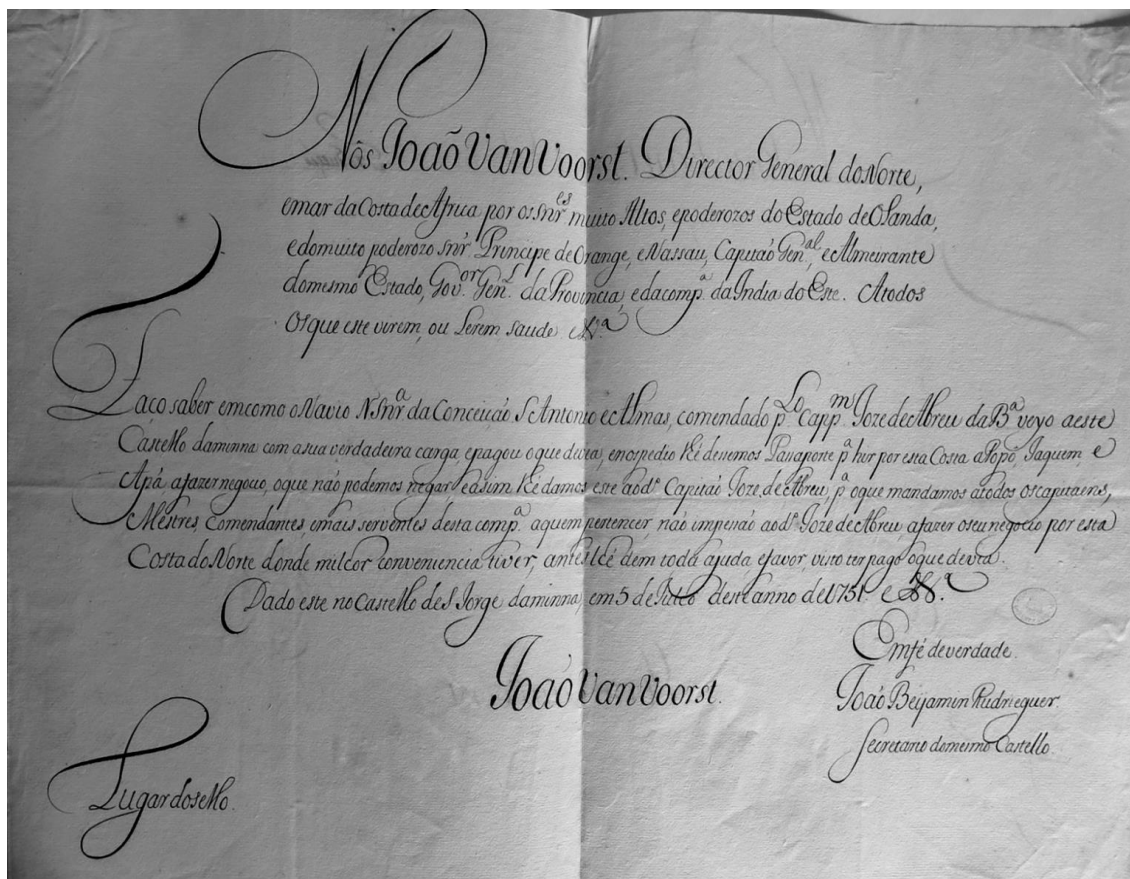 Nós João Van Voorst. Director General do Norte,
emar da Costa de Africa por os Snr.es muito Altos, e poderozos do Estado de Olanda,
e do muito poderozo Snr. Principe de Orange, e Nassau, Capitaõ Gen.al, e Almeirante
do mesmo Estado, Gov.or Gen.l da Provincia, e da comp.a da India do Este. Atodos
Os que este virem, ou Lerem saude &.a
Faco saber emcomo o Navio N. Snr.a da Conceiçaõ S. Antonio e Almas, comendado p.Lo Capp.m Joze de Abreu da B.a veyo a este
Castello da minna com a sua verdadeira carga, e pagou o que divia, enos pedio lé dessemos Passaporte p.a hir por esta Costa a Popó, Jaquem, e
Apá, a fazer negocio, o que não podemos negar, e asim lé damos este ao d.o Capitaõ Joze de Abreu, p.a o que mandamos a todos os capitaens,
Mestres, Comendantes, e mais serventes desta comp.a aquem pertencer, não impessão ao d.o Joze de Abreu a fazer o seu negocio por esta
Costa do Norte donde milior conveniencia tiver, antes lé dem toda ajuda e favor, visto ter pago o que devia.
Dado este no Castello de S. Jorge da minna, em 5 de Julio deste anno de 1751 e &.a
Em fé de verdade.
João Van Voorst.
João Beijamin Rudrieguer.
Secretario do mesmo Castello.
Lugar do sello.